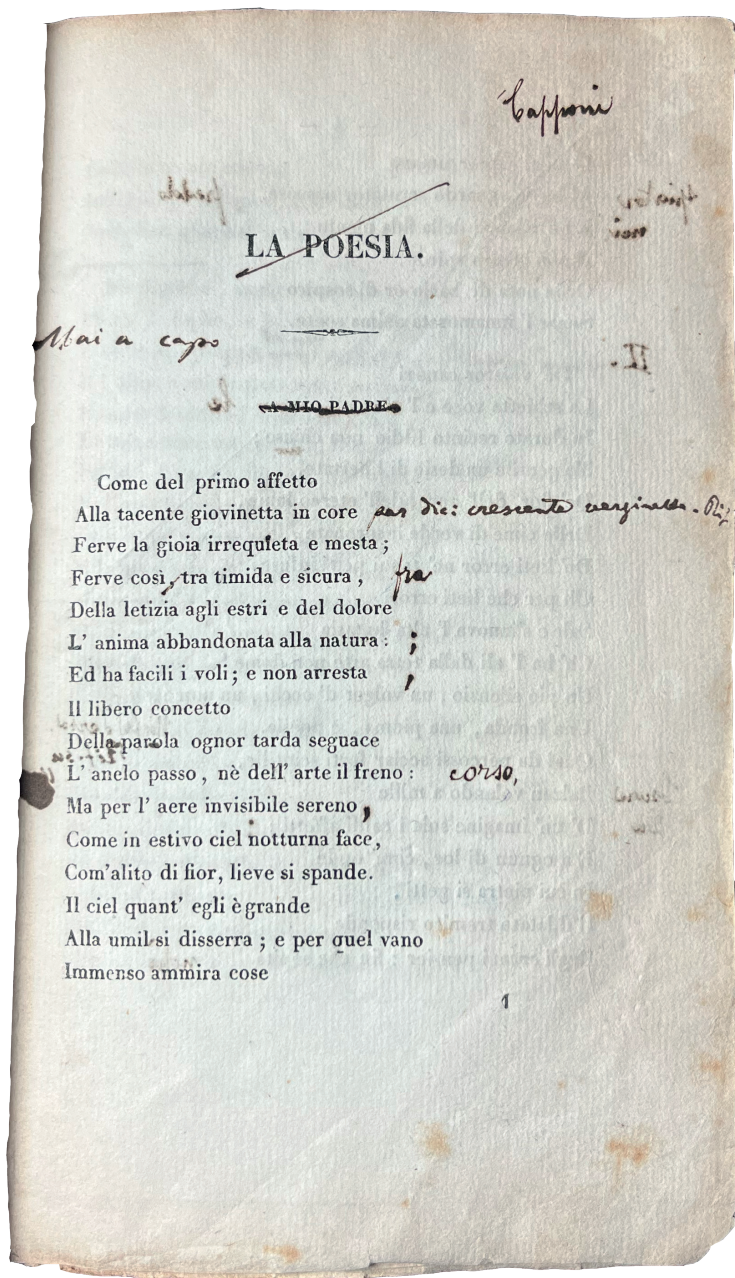 Capponi
LA POESIA.
Mai a capo
A MIO PADRE
Come del primo affetto
Alla tacente giovinetta in core pas dic: crescente verginetta.
Ferve la gioia irrequieta e mesta;
Ferve così, tra timida e sicura, fra
Della letizia agli estri e del dolore
L' anima abbandonata alla natura: ;
Ed ha facili i voli; e non arresta ,
Il libero concetto
Della parola ognor tarda seguace
L' anelo passo, nè dell' arte il freno: corso,
Ma per l' aere invisibile sereno,
Come in estivo ciel notturna face,
Com'alito di fior, lieve si spande.
Il ciel quant' egli è grande
Alla umil si disserra; e per quel vano
Immenso ammira cose
1